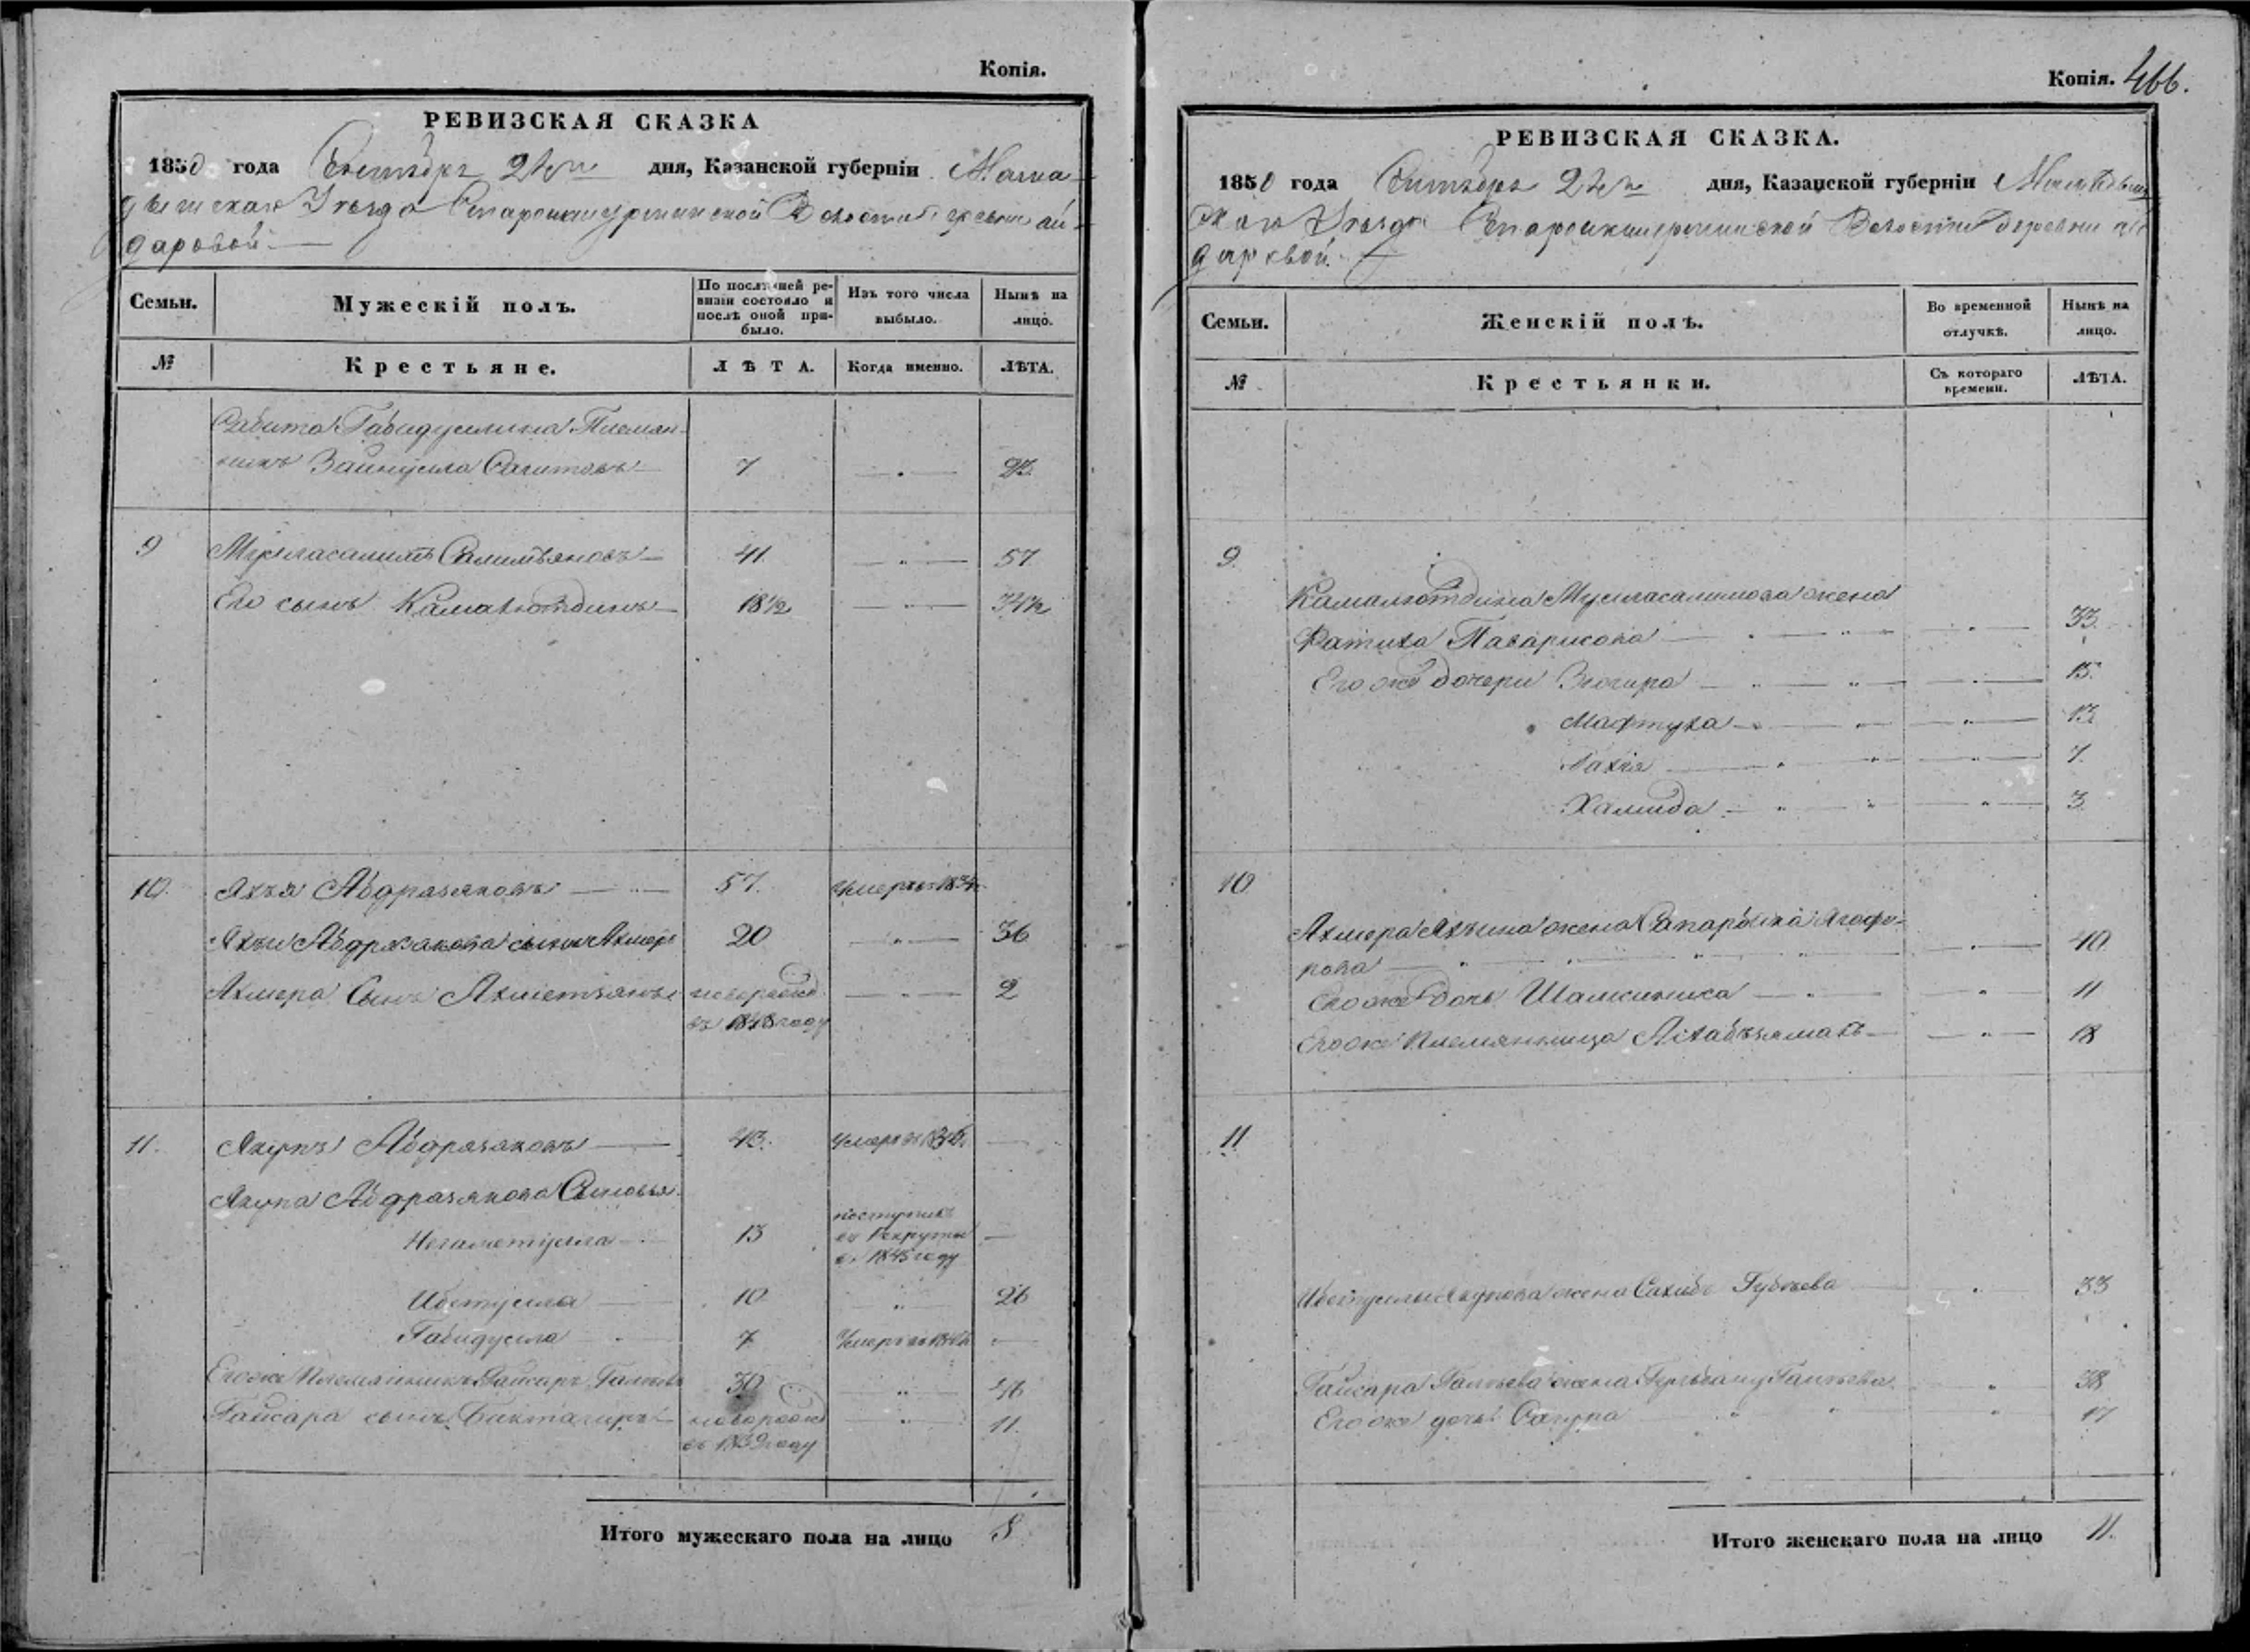 Копія.
РЕВИЗСКАЯ СКАЗКА
1850 года Сентября 24го дня, Казанской губерніи Мама-
дышскаго Уѣзда Старокишерминской Волости деревни Ай-
даровой
Семьи.
Мужескій полъ.
По послѣдней ре-
визіи состояло и
послѣ оной при-
было.
Изъ того числа
выбыло.
Нынѣ на
лицо.
№
Крестьяне.
ЛѢТА.
Когда именно.
ЛѢТА.
Габидуллина Племян-
никъ Зайнулла Сагитовъ 7 23
9 Мусласалимъ Салимьяновъ 41 57
Его сынъ Камалютдинъ 18½ 34½
10. Яхья Абдразяковъ 57. умеръ въ 1834
Яхьи Абдразякова сынъ Ахмеръ 20 36
Ахмера Сынъ Ахметзянъ новорожд. 2
въ 1848 году
11. Якупъ Абдразяковъ 43. умеръ въ
Якупа Абдразякова Сыновья
Негаметулла 13 поступилъ
въ Рекруты
въ 1845 году
Ибетулла 10 26
Габидулла 7 умеръ въ
Его же Племянникъ Гайсаръ 30 46
Гайсара сынъ Биктагиръ новорожд. 11.
въ 1839 году
Итого мужескаго пола на лицо 8
Копія. 466.
РЕВИЗСКАЯ СКАЗКА.
1850 года Сентября 24го дня, Казанской губерніи Мамадыш-
скаго Уѣзда Старокишерминской Волости деревни Ай-
даровой.
Семьи.
Женскій полъ.
Во временной
отлучкѣ.
Нынѣ на
лицо.
№
Крестьянки.
Съ котораго
времени.
ЛѢТА.
9.
Камалютдина Мусласалимова жена
Фатиха 33.
Его же дочери 15.
Мафтуха 13
7.
Хамида 3.
10
Ахмера Яхьина жена Ягофо-
рова 40.
Его же дочь Шамсиниса 11
Его же Племянница 18
11
Ибетуллы Якупова жена Сахиба 33
Гайсара жена 38
Его же дочь 17
Итого женскаго пола на лицо 11.